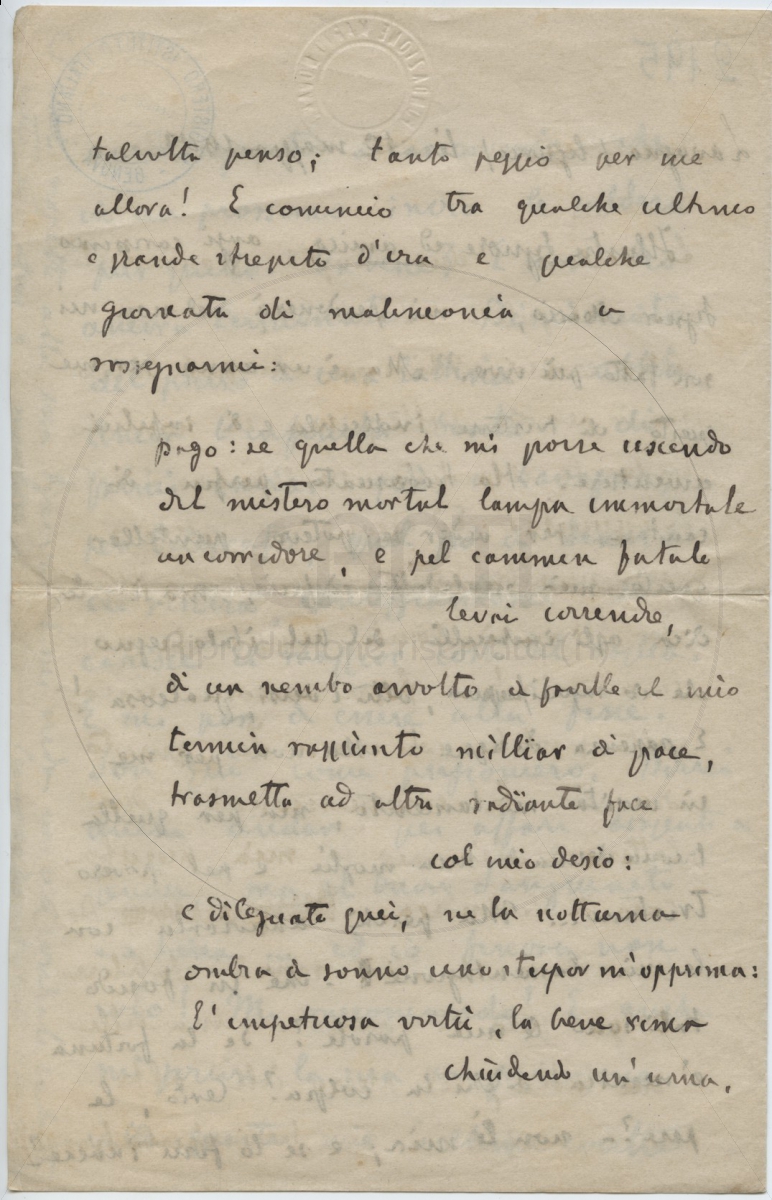 talvolta penso; tanto peggio per me
allora! E comincio tra qualche ultimo
e grande strepito d'ira e qualche
giornata di malinconia a
rassegnarmi:
pago: se quella che mi porse uscendo
del mistero mortal lampa immortale
un corridore, e pel cammin fatale
levai correndo,
di un nembo avvolto di faville il mio
termin raggiunto milliar di pace,
trasmetta ad altri radïante face
col mio desio:
e dileguati quei, ne la notturna
ombra di sonno uno stupor m'opprima:
E' impetuosa virtù, la breve rima
chiudendo un'urna.
Riproduzione riservata